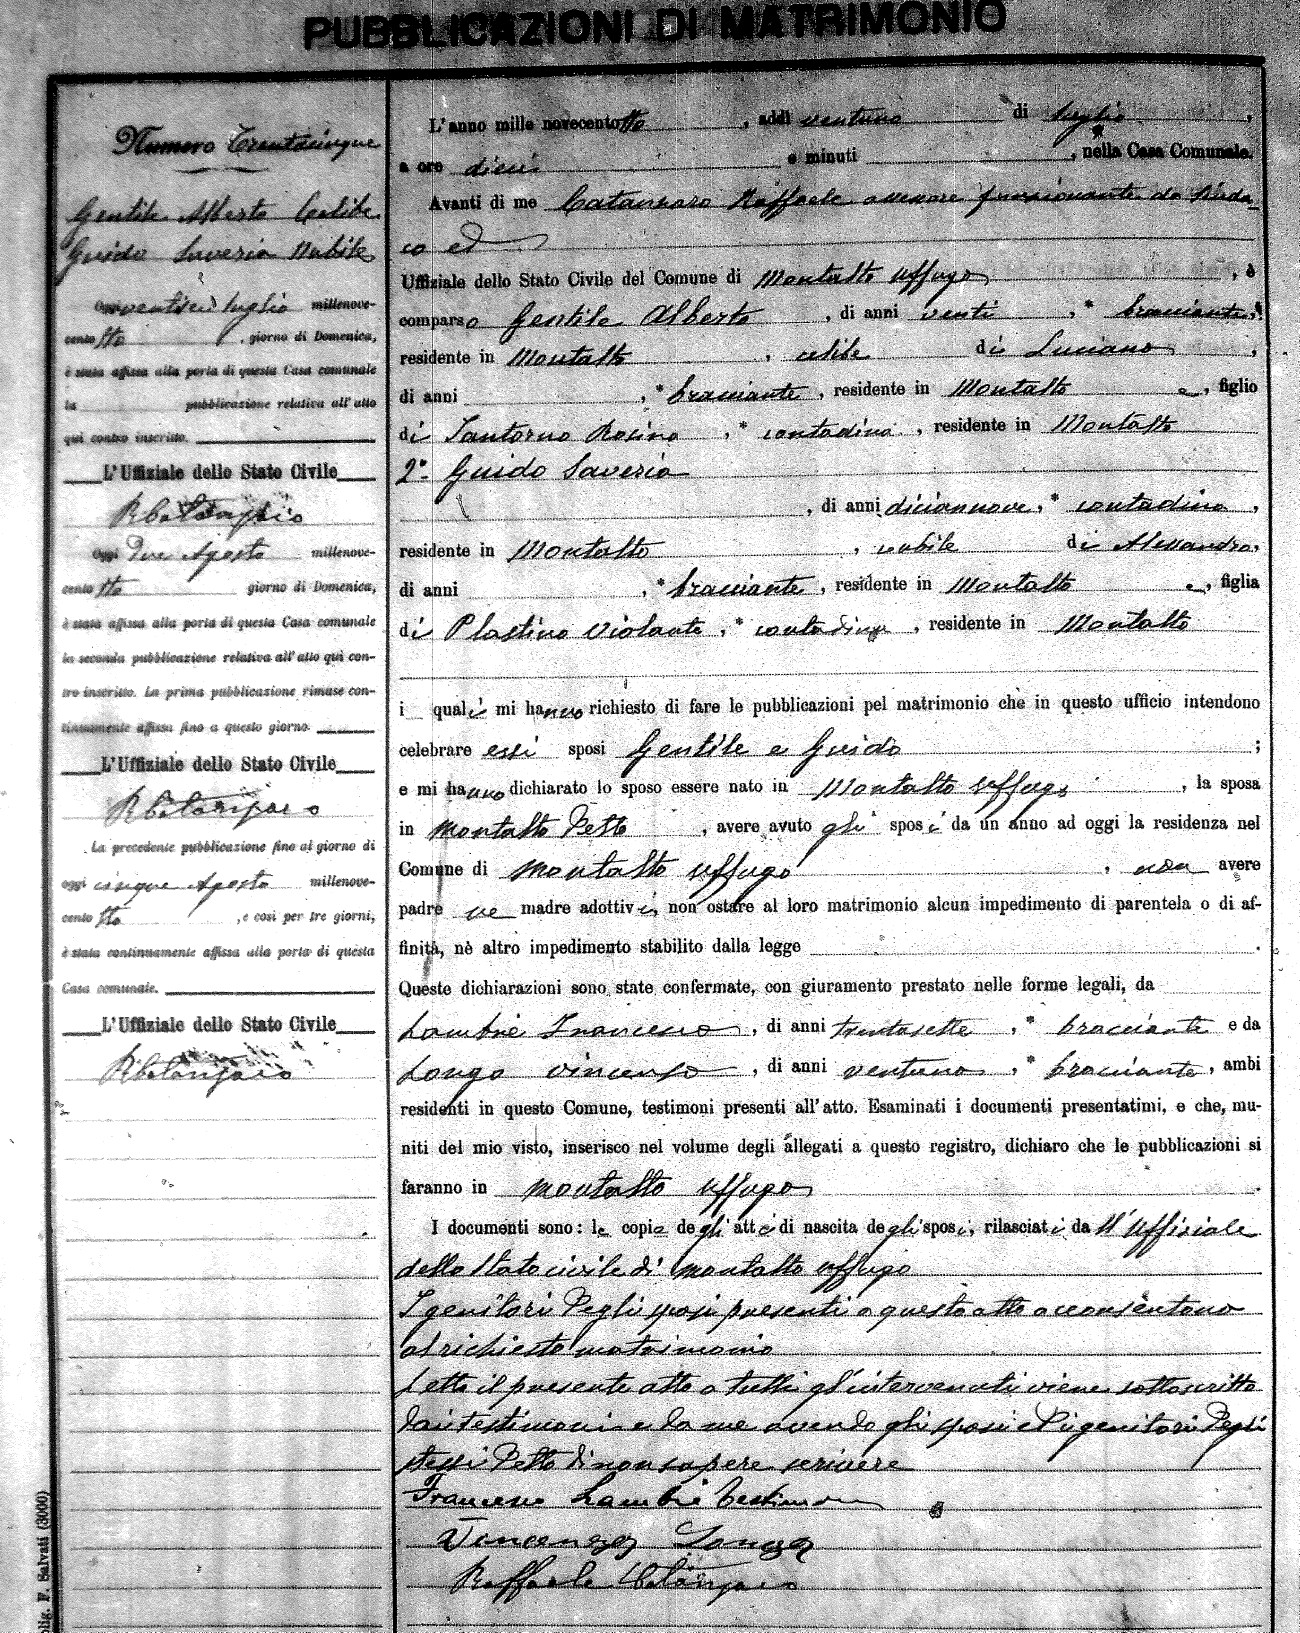 PUBBLICAZIONI DI MATRIMONIO
Numero Trentacinque
Gentile Alberto Celibe
Guido Saveria Nubile
Oggi ventisei luglio millenove-
cento tto , giorno di Domenica,
è stata affissa alla porta di questa Casa comunale
la pubblicazione relativa all'atto
quì contro inscritto.
L'Uffiziale dello Stato Civile
RCatanzaro
Oggi due Agosto millenove-
cento tto giorno di Domenica,
è stata affissa alla porta di questa Casa comunale
la seconda pubblicazione relativa all'atto quì con-
tro inscritto. La prima pubblicazione rimase con-
tinuamente affissa fino a questo giorno.
L'Uffiziale dello Stato Civile
RCatanzaro
La precedente pubblicazione fino al giorno di
oggi cinque Agosto millenove-
cento tto , e così per tre giorni,
è stata continuamente affissa alla porta di questa
Casa comunale.
L'Uffiziale dello Stato Civile
RCatanzaro
L'anno mille novecentotto , addì ventuno di luglio ,
a ore dieci e minuti , nella Casa Comunale.
Avanti di me Catanzaro Raffaele assessore funzionante da Sinda-
co ed
Uffiziale dello Stato Civile del Comune di Montalto Uffugo , è
comparso Gentile Alberto , di anni venti , * bracciante,
residente in Montalto , celibe di Luciano ,
di anni , * bracciante , residente in Montalto e , figlio
di Santorno Rosina , * contadina , residente in Montalto
2° Guido Saveria
, di anni diciannove , * contadina ,
residente in Montalto , nubile di Alessandro,
di anni , * bracciante , residente in Montalto e , figlia
di Plastino Violante , * contadina , residente in Montalto
i quali mi hanno richiesto di fare le pubblicazioni pel matrimonio che in questo ufficio intendono
celebrare essi sposi Gentile e Guido ;
e mi hanno dichiarato lo sposo essere nato in Montalto Uffugo , la sposa
in Montalto detto , avere avuto gli sposi da un anno ad oggi la residenza nel
Comune di Montalto Uffugo , non avere
padre ne madre adottivi, non ostare al loro matrimonio alcun impedimento di parentela o di af-
finità, nè altro impedimento stabilito dalla legge .
Queste dichiarazioni sono state confermate, con giuramento prestato nelle forme legali, da
Lambrie Francesco , di anni trentasette , * bracciante e da
Longo Vincenzo , di anni ventuno , * bracciante , ambi
residenti in questo Comune, testimoni presenti all'atto. Esaminati i documenti presentatimi, e che, mu-
niti del mio visto, inserisco nel volume degli allegati a questo registro, dichiaro che le pubblicazioni si
faranno in Montalto Uffugo .
I documenti sono: le copie degli atti di nascita degli sposi, rilasciati da ll'Uffiziale
dello Stato civile di Montalto Uffugo
I genitori degli sposi presenti a questo atto acconsentono
al richiesto matrimonio
Letto il presente atto a tutti gl'intervenuti viene sottoscritto
dai testimoni e da me avendo gli sposi ed i genitori degli
stessi detto di non sapere scrivere
Francesco Lambrie testimone
Vincenzo Longo
Raffaele Catanzaro
F. Salvati (3000)